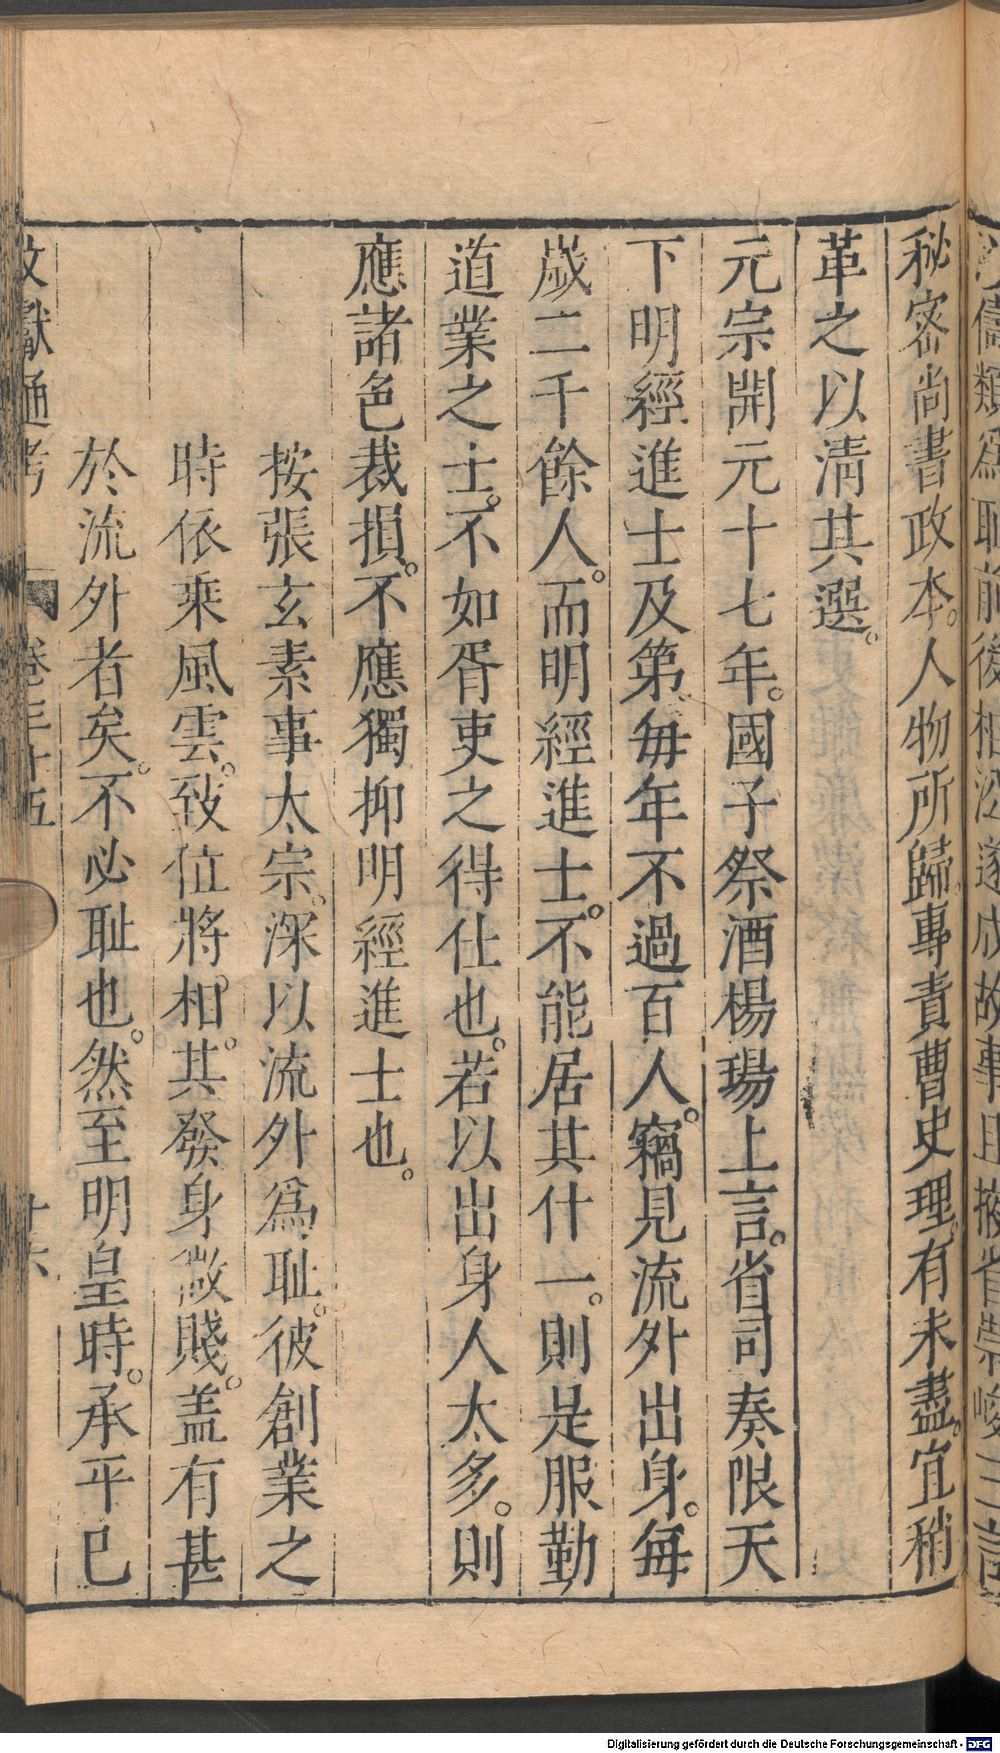 秘密尚書政本。人物所歸。專責曹史。理有未盡。宜稍
革之以清其選。
元宗開元十七年。國子祭酒楊瑒上言。省司奏限天
下明經進士及第。每年不過百人。竊見流外出身。每
歲二千餘人。而明經進士。不能居其什一。則是服勤
道業之士。不如胥吏之得仕也。若以出身人太多。則
應諸色裁損。不應獨抑明經進士也。
按張玄素事太宗。深以流外爲耻。彼創業之
時依乘風雲。致位將相。其發身微賤。盖有甚
於流外者矣。不必耻也。然至明皇時。承平已
文獻通考 卷三十五 十六
Digitalisierung gefördert durch die Deutsche Forschungsgemeinschaft - DFG